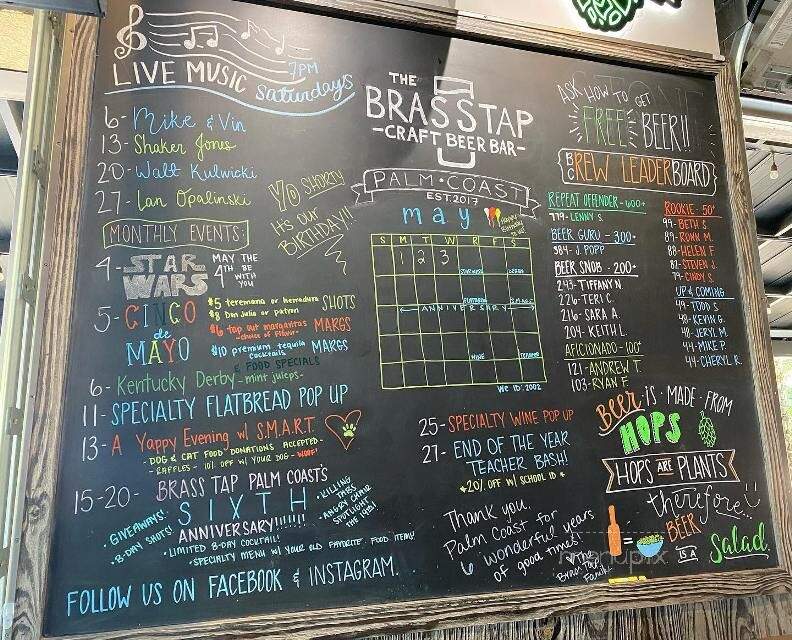 LIVE MUSIC 7PM
Saturdays
6- Mike & Vin
13- Shaker Jones
20- Walt Kulwicki
27- Lan Opalinski
MONTHLY EVENTS:
4- STAR WARS
MAY THE
4TH BE
WITH
YOU
5- CINCO
de
MAYO
$5 teremana or herradura SHOTS
$8 Don Julio or patron
$6 tap out margaritas MARGS
-choice of flavor-
$10 premium tequila MARGS
cocktails
& FOOD SPECIALS
6- Kentucky Derby -mint juleps-
11- SPECIALTY FLATBREAD POP UP
13- A Yappy Evening w/ S.M.A.R.T.
- DOG & CAT FOOD DONATIONS ACCEPTED-
- RAFFLES - 10% OFF W/ YOUR DOG - WOOF!
15-20- BRASS TAP PALM COAST'S
SIXTH
ANNIVERSARY!!!!!!
•GIVEAWAYS!
•8-DAY SHOTS!
•KILLING
TAPS
ANGRY CHAIR
SPOTLIGHT
THE 19th!
•LIMITED 8-DAY COCKTAIL!
•SPECIALTY MENU W/ YOUR OLD FAVORITE FOOD ITEMS!
FOLLOW US ON FACEBOOK & INSTAGRAM.
YO SHORTY
It's our
BIRTHDAY!!
THE
BRASS TAP
-CRAFT BEER BAR-
PALM•COAST
EST. 2017
may
S M T W R F S
1 2 3
STAR WARS
DERBY
FLATBREAD
S.M.A.R.T.
ANNIVERSARY
WINE
TEACHER
We ID: 2002
25- SPECIALTY WINE POP UP
27- END OF THE YEAR
TEACHER BASH!
*20% OFF w/ SCHOOL ID*
Thank you,
Palm Coast for
6 wonderful years
of good times!
Brass Tap
Family
ASK HOW TO GET
FREE BEER!!
BREW LEADERBOARD
REPEAT OFFENDER - 600+
779- LENNY S.
BEER GURU - 300+
384- J. POPP
BEER SNOB - 200+
243- TIFFANY N
226- TERI C.
216- SARA A.
204- KEITH L.
AFICIONADO - 100+
121- ANDREW T.
103- RYAN F.
ROOKIE - 50+
99- BETH S.
89- RONN M.
88- HELEN F.
82- STEVEN J.
79- CINDY S.
UP & COMING
49- TODD S
48- KEVIN G.
48- JERYL M.
44- MIKE P.
44- CHERYL K.
Beer IS • MADE • FROM
HOPS
HOPS ARE PLANTS
therefore...
BEER
IS A
Salad.
=
menupix